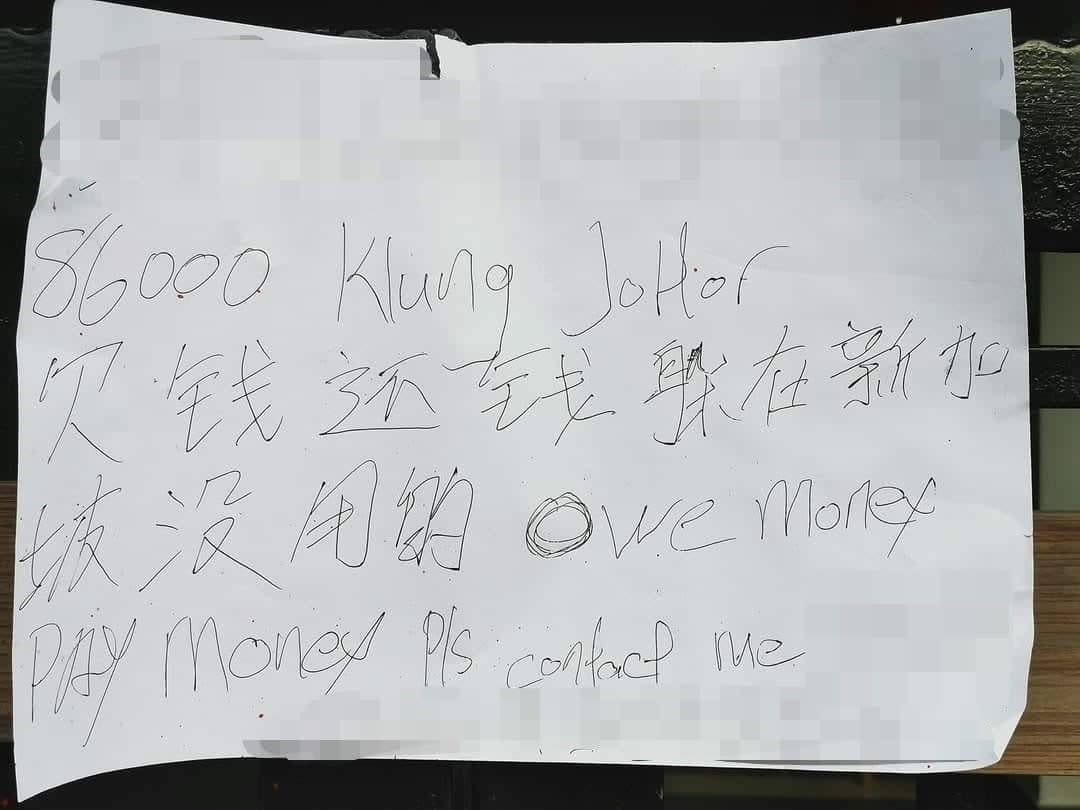 86000 Klung JoHor
欠钱还钱躲在新加
坡没用的 Owe money
PAY Money Pls contact me